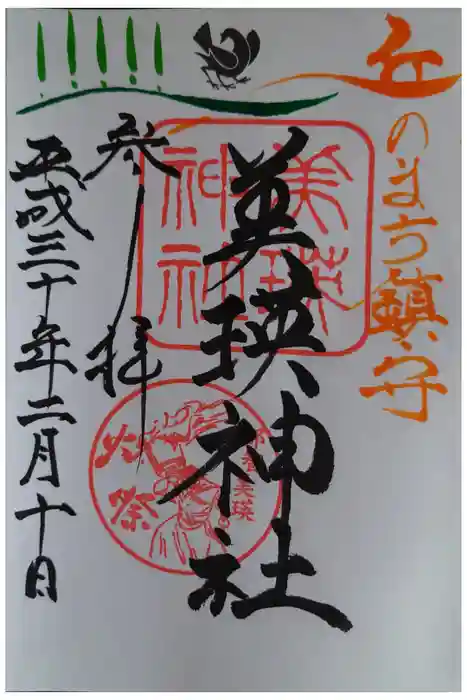 丘のまち鎮守
美瑛神社
参拝
平成三十年二月十日
美瑛
神社
美瑛
火祭